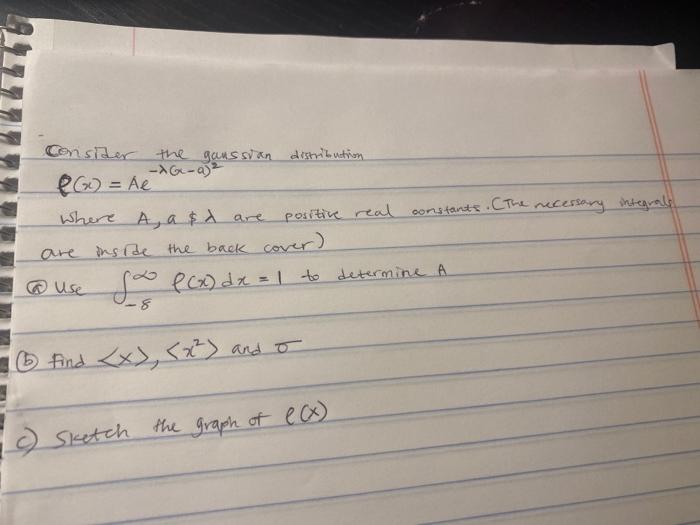 Consider the gaussian distribution
ρ(x) = Ae^{-λ(x-a)²}
where A, a & λ are positive real constants. (The necessary integrals
are inside the back cover)
(a) Use ∫_{-8}^{∞} ρ(x) dx = 1 to determine A
(b) find <x>, <x²> and σ
c) Sketch the graph of ρ(x)